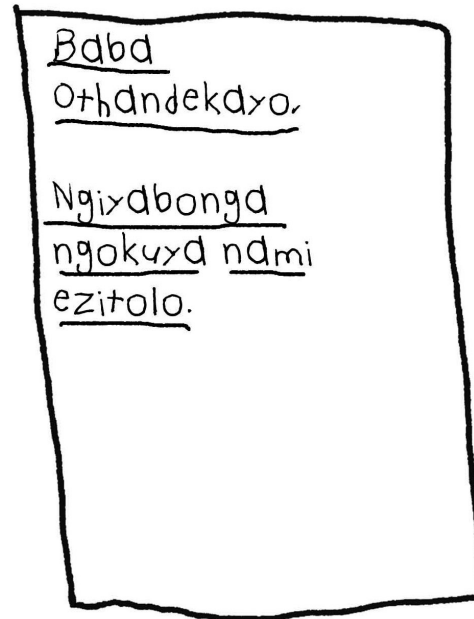 Baba
Othandekayo,
Ngiyabonga
ngokuya nami
ezitolo.